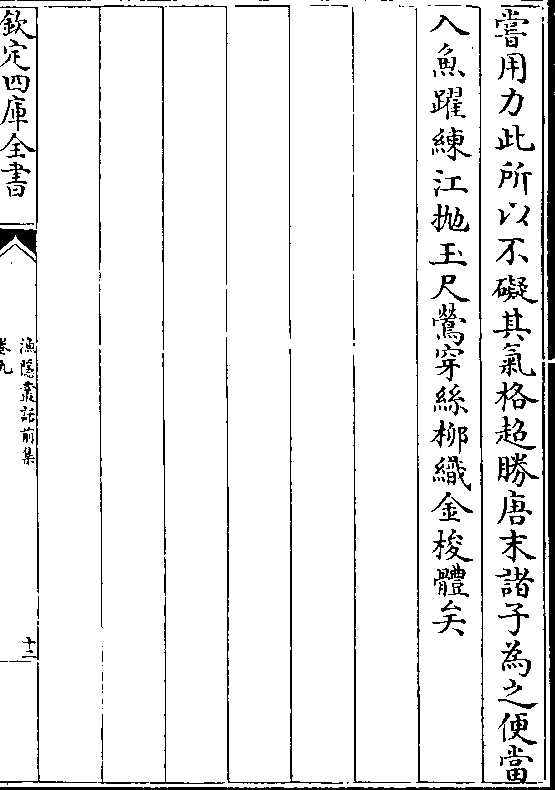 嘗用力此所以不礙其氣格超勝唐末諸子為之便當
入魚躍練江抛玉尺鶯穿絲柳織金梭體矣
欽定四庫全書
漁隱叢話前集
卷九
十二